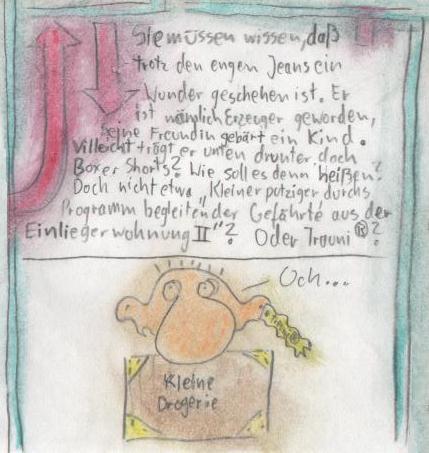 Sie müssen wissen, daß
trotz den engen Jeans ein
Wunder geschehen ist. Er
ist nämlich Erzeuger geworden,
eine Freundin gebärt ein Kind.
Villeicht trägt er unten drunter doch
Boxer Shorts? Wie soll es denn heißen?
Doch nicht etwa „Kleiner putziger durchs
Programm begleitender Gefährte aus der
Einliegerwohnung II"? Oder Trauni®?
Och...
Kleine
Drogerie